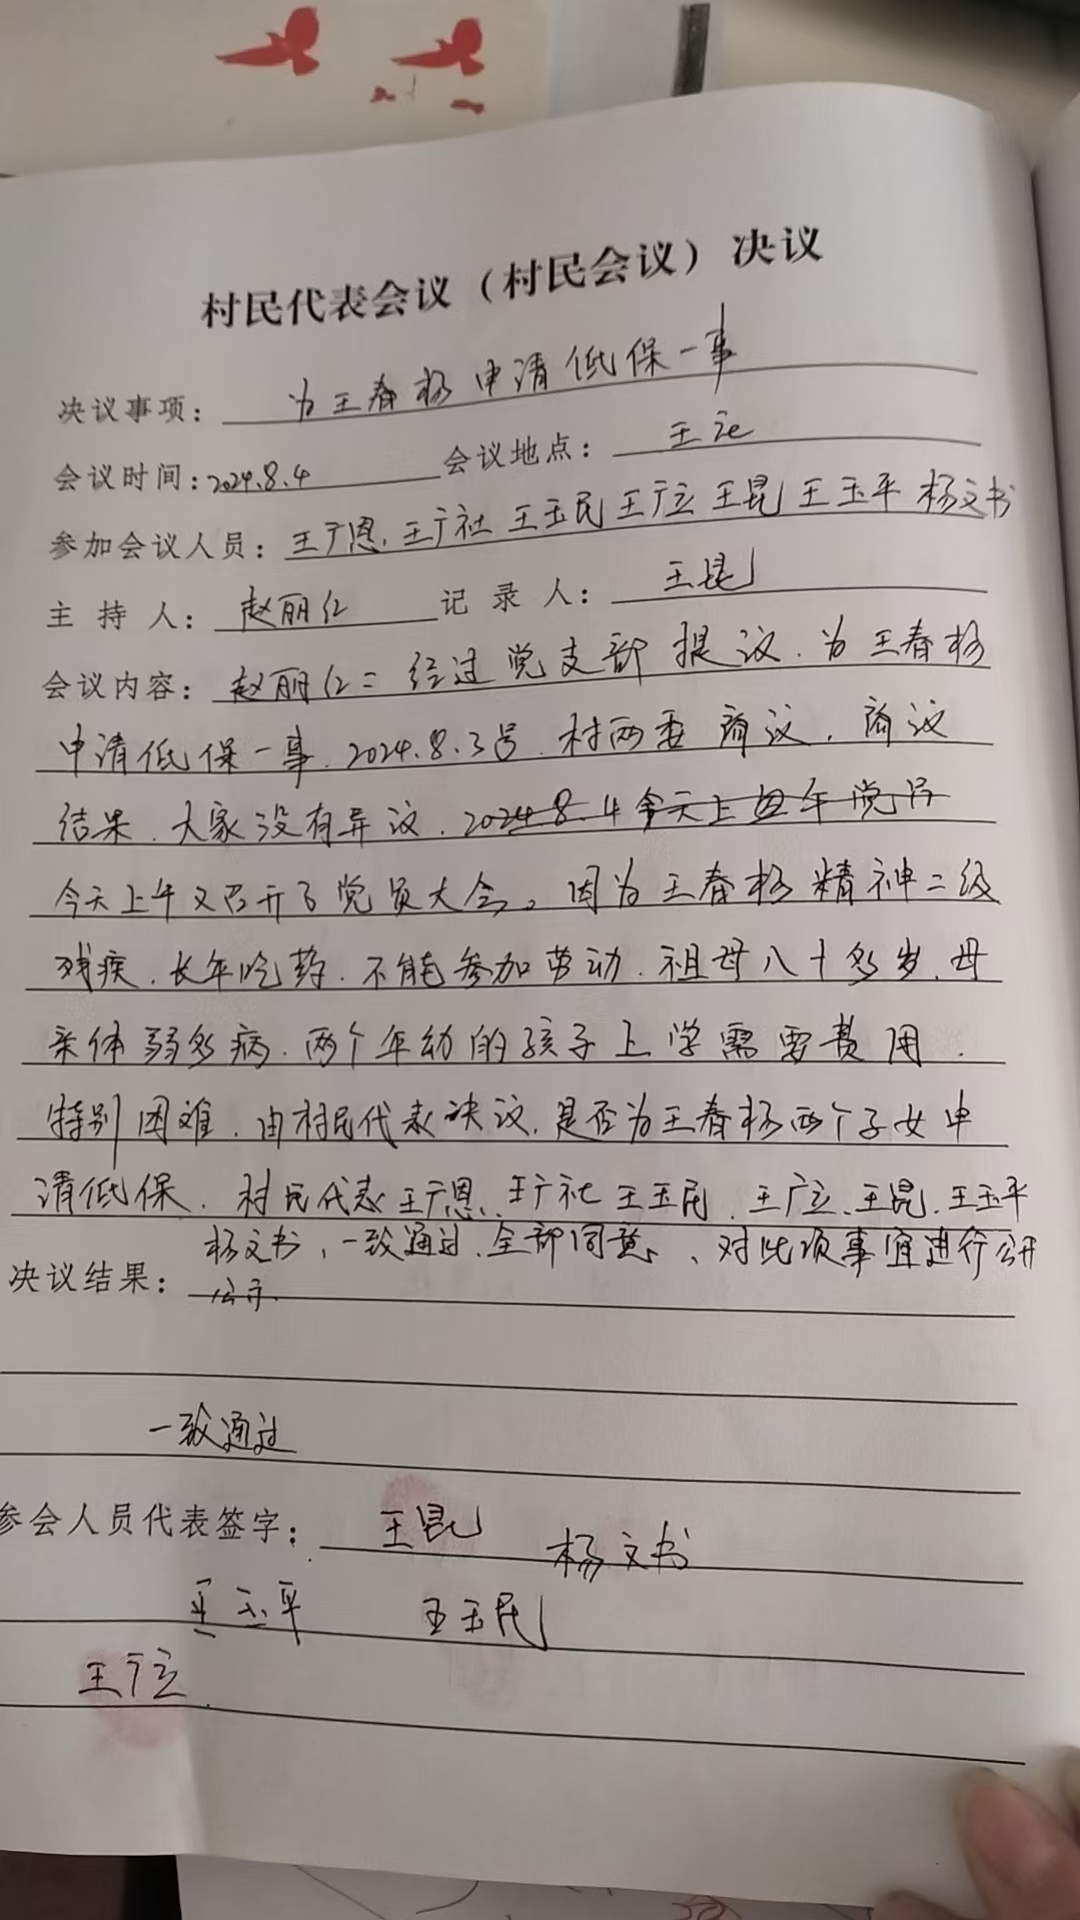 村民代表会议（村民会议）决议
决议事项： 为王春杨申请低保一事
会议时间：2024.8.4 会议地点： 王
参加会议人员： 王广恩、王广社 王玉民 王广立 王昆 王玉平 杨文书
主持人： 赵丽仁 记录人： 王昆
会议内容： 赵丽仁：经过党支部提议、为王春杨
申请低保一事、2024.8.3号、村两委商议，商议
结果、大家没有异议、2024.8.4今天上午党员
今天上午又召开了党员大会。因为王春杨精神二级
残疾、长年吃药、不能参加劳动、祖母八十多岁、母
亲体弱多病、两个年幼的孩子上学需要费用、
特别困难、由村民代表决议、是否为王春杨两个子女申
请低保、村民代表王广恩、王广社 王玉民、王广立、王昆、王玉平
杨文书、一致通过、全部同意、、对此项事宜进行公开
决议结果： 公示.
一致通过
参会人员代表签字： 王昆 杨文书
王玉平 王玉民
王广立